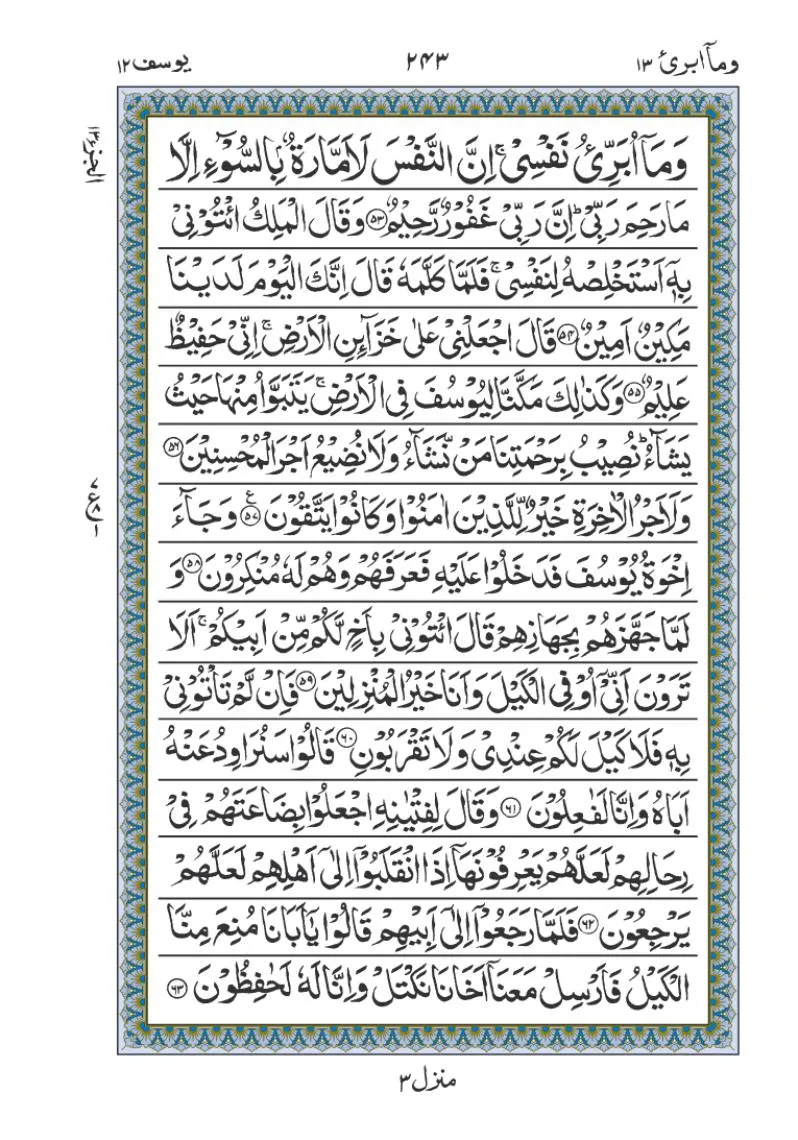 وماۤ ابرئ ١٣
٢٤٣
يوسف ١٢
وَمَاۤ اُبَرِّئُ نَفْسِیْ ۚ اِنَّ النَّفْسَ لَاَمَّارَةٌۢ بِالسُّوْٓءِ اِلَّا
مَا رَحِمَ رَبِّیْ ؕ اِنَّ رَبِّیْ غَفُوْرٌ رَّحِیْمٌ ۝۵۳ وَقَالَ الْمَلِكُ ائْتُوْنِیْ
بِهٖۤ اَسْتَخْلِصْهُ لِنَفْسِیْ ۚ فَلَمَّا كَلَّمَهٗ قَالَ اِنَّكَ الْیَوْمَ لَدَیْنَا
مَكِیْنٌ اَمِیْنٌ ۝۵۴ قَالَ اجْعَلْنِیْ عَلٰی خَزَآئِنِ الْاَرْضِ ۚ اِنِّیْ حَفِیْظٌ
عَلِیْمٌ ۝۵۵ وَكَذٰلِكَ مَكَّنَّا لِیُوْسُفَ فِی الْاَرْضِ ۚ یَتَبَوَّاُ مِنْهَا حَیْثُ
یَشَآءُ ؕ نُصِیْبُ بِرَحْمَتِنَا مَنْ نَّشَآءُ وَلَا نُضِیْعُ اَجْرَ الْمُحْسِنِیْنَ ۝۵۶
وَلَاَجْرُ الْاٰخِرَةِ خَیْرٌ لِّلَّذِیْنَ اٰمَنُوْا وَكَانُوْا یَتَّقُوْنَ ۝۵۷ ع وَجَآءَ
اِخْوَةُ یُوْسُفَ فَدَخَلُوْا عَلَیْهِ فَعَرَفَهُمْ وَهُمْ لَهٗ مُنْكِرُوْنَ ۝۵۸ وَ
لَمَّا جَهَّزَهُمْ بِجَهَازِهِمْ قَالَ ائْتُوْنِیْ بِاَخٍ لَّكُمْ مِّنْ اَبِیْكُمْ ۚ اَلَا
تَرَوْنَ اَنِّیْۤ اُوْفِی الْكَیْلَ وَاَنَا خَیْرُ الْمُنْزِلِیْنَ ۝۵۹ فَاِنْ لَّمْ تَاْتُوْنِیْ
بِهٖ فَلَا كَیْلَ لَكُمْ عِنْدِیْ وَلَا تَقْرَبُوْنِ ۝۶۰ قَالُوْا سَنُرَاوِدُ عَنْهُ
اَبَاهُ وَاِنَّا لَفٰعِلُوْنَ ۝۶۱ وَقَالَ لِفِتْیٰنِهِ اجْعَلُوْا بِضَاعَتَهُمْ فِیْ
رِحَالِهِمْ لَعَلَّهُمْ یَعْرِفُوْنَهَاۤ اِذَا انْقَلَبُوْۤا اِلٰۤی اَهْلِهِمْ لَعَلَّهُمْ
یَرْجِعُوْنَ ۝۶۲ فَلَمَّا رَجَعُوْۤا اِلٰۤی اَبِیْهِمْ قَالُوْا یٰۤاَبَانَا مُنِعَ مِنَّا
الْكَیْلُ فَاَرْسِلْ مَعَنَاۤ اَخَانَا نَكْتَلْ وَاِنَّا لَهٗ لَحٰفِظُوْنَ ۝۶۳
الجزء ١٣
منزل ٣